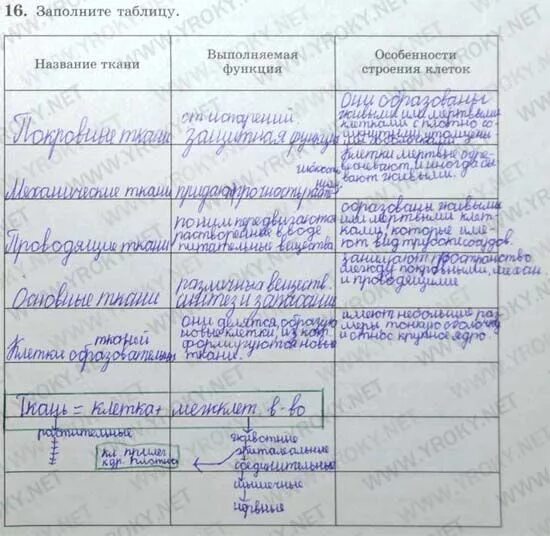 16. Заполните таблицу.
Название ткани
Выполняемая
функция
Особенности
строения клеток
Покровные ткани
от испарений
защитная функция
Они образованы
живыми или мертвыми
клетками с плотно со
мкнутыми утолщенн
оболочками
Механические ткани
придают прочность
клетки мертвые
и иногда бы
вают живыми.
Проводящие ткани
по ним передвигаются
растворенные в воде
питательные вещества
образованы живыми
или мертвыми клет-
ками, которые име-
ют вид трубок и сосудов.
Основные ткани
различных веществ.
синтез и запасание
занимают пространство
между покровными, механ
и проводящими
Клетки образовательн
тканей
они делятся, образую
новые клетки, из кот
формируются новые
ткани.
имеют небольшие раз
меры тонкую оболочку
и относ крупное ядро.
Ткань = клетка + межклет. в-во
растительные
кл. прилег
друг плотно
животные
эпителиальные
соединительные
мышечные
нервные
WWW.YROKY.NET